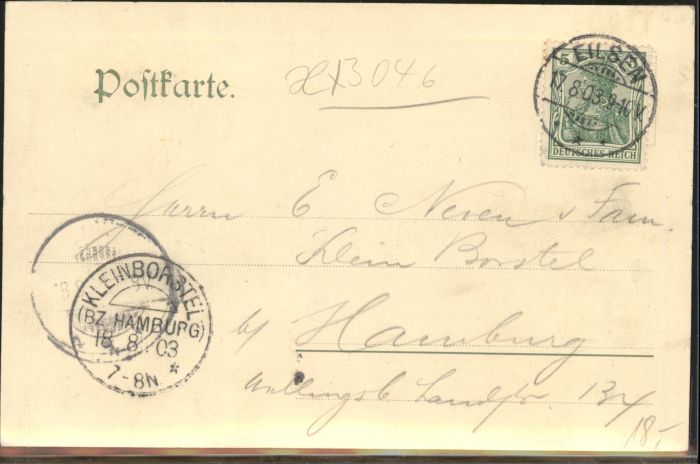 Postkarte.
xx3046
5
EILSEN
17.8.03.9-10 V.
DEUTSCHES REICH
Herrn E Neven u Fam.
Klein Borstel
KLEINBORSTEL
(BZ. HAMBURG)
18. 8. 03
7-8N.
b/ Hamburg
Landstr. 134
18,-